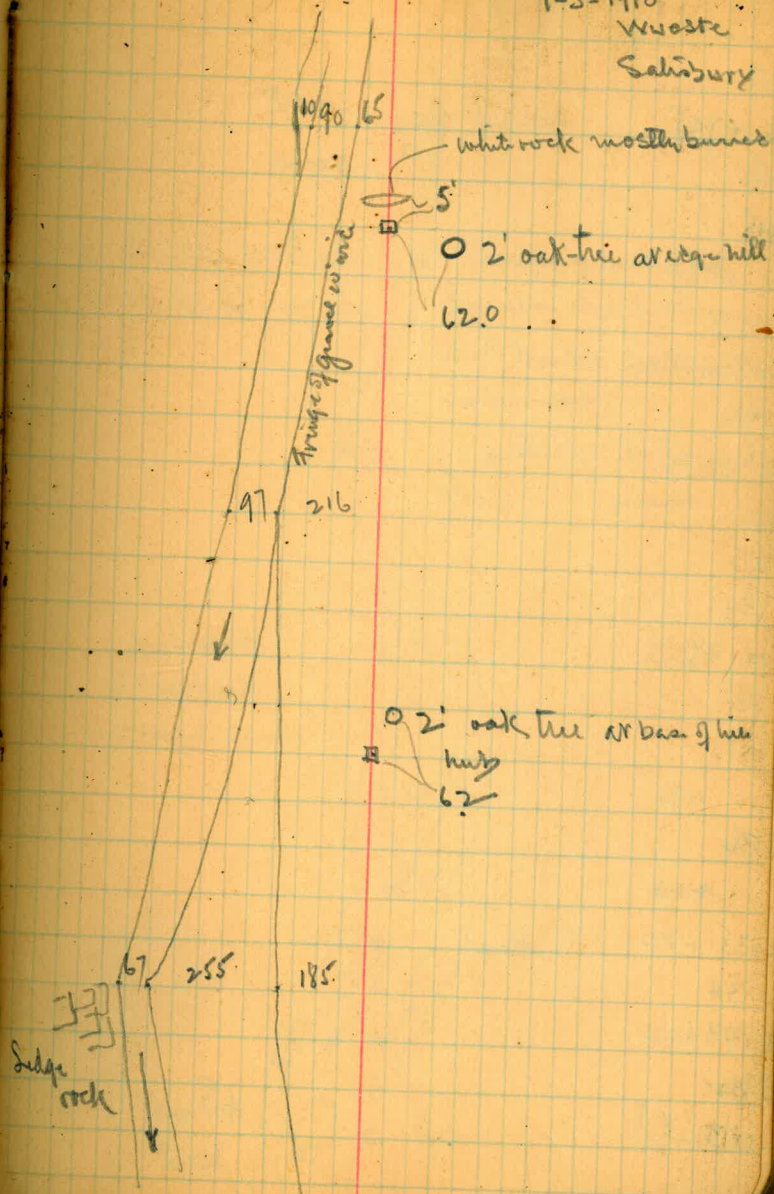 1-3-1910
Wueste
Salisbury
10 90 65
white rock mostly buried
5'
2' oak-tree at edge hill
62.0
Fringe of gravel
97 216
2' oak tree at base of hill
hub
62
67 255 185
Ledge
rock